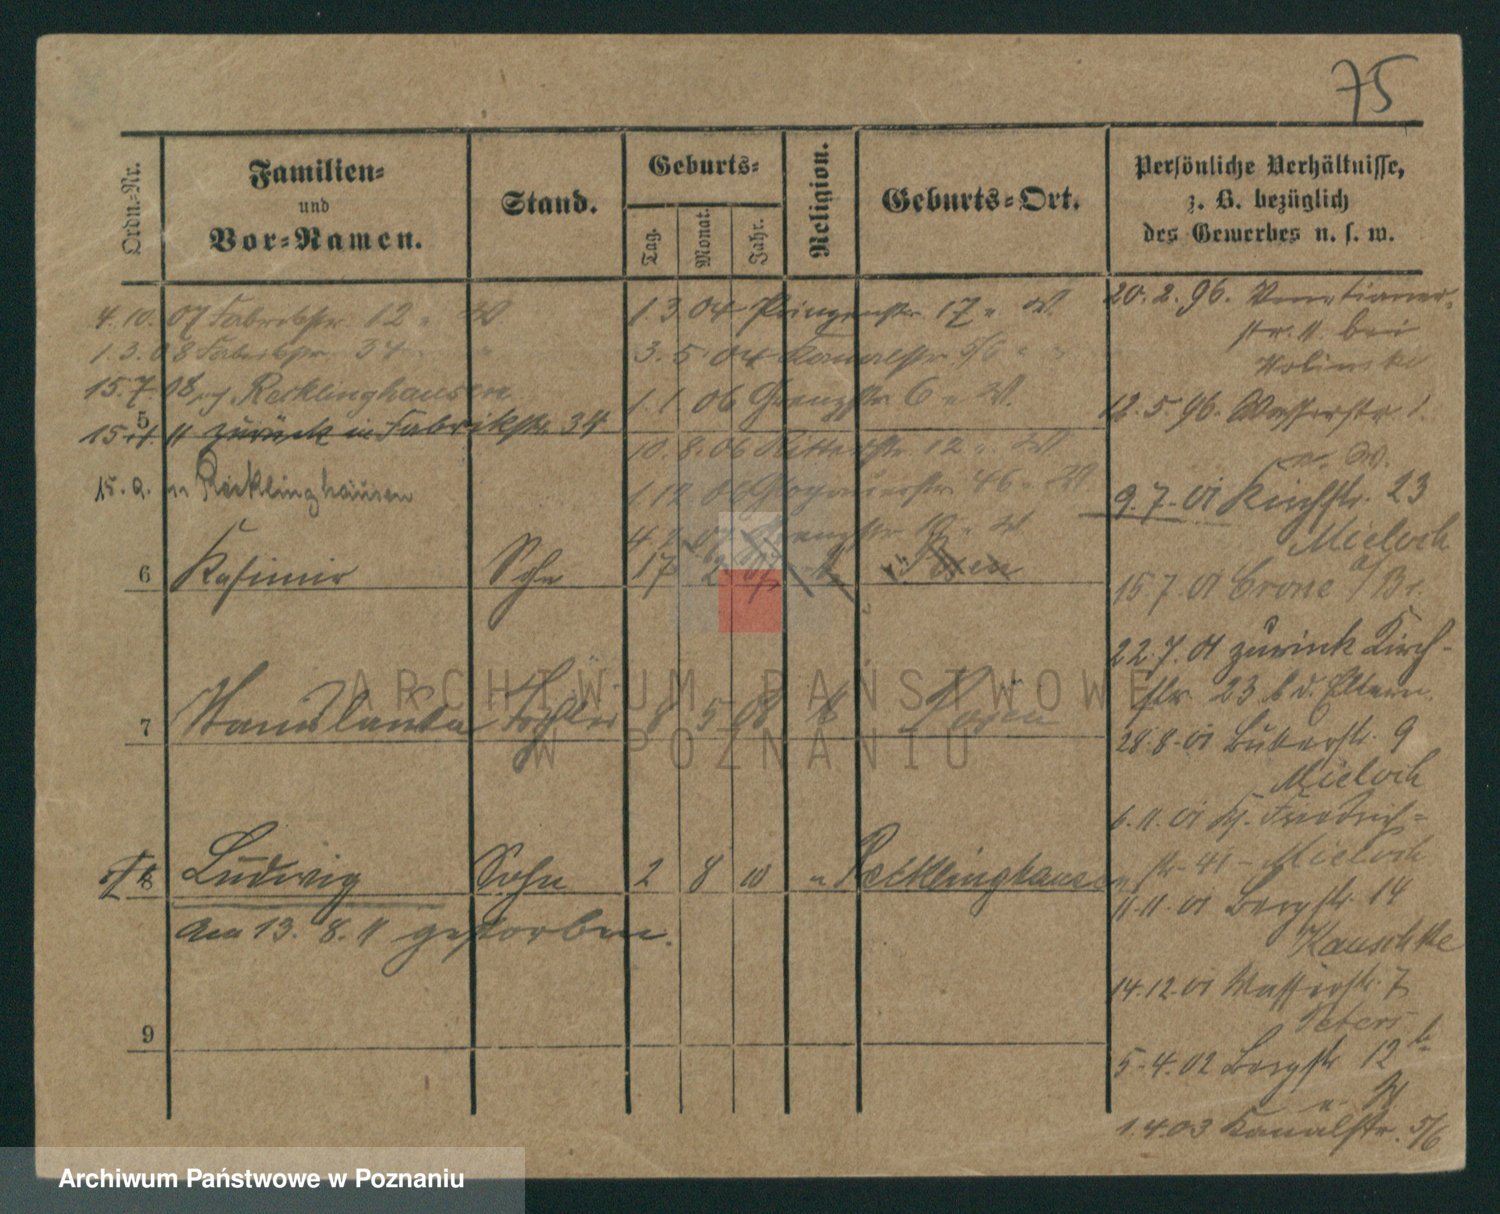 75
Ordn.-Nr.
Familien-
und
Vor-Namen.
Stand.
Geburts-
Tag.
Monat.
Jahr.
Religion.
Geburts-Ort.
Persönliche Verhältnisse,
z. B. bezüglich
des Gewerbes u. s. w.
4.10.07 Fabrikstr. 12
1.3.08 Fabrikstr. 34
15.7.08 Recklinghausen
5
15. zurück in Fabrikstr. 34
15.9. Recklinghausen
1.3.04 Prinzenstr. 17
3.5.04 Kanalstr. 5/6
1.1.06 Grenzstr. 6
10.8.06 Ritterstr. 12
Glogauerstr. 46
Grenzstr.
6 Kasimir Sohn 17 2 Posen
7 Stanislawa Tochter 8 5 08 Posen
8 Ludwig Sohn 2 8 10 Recklinghausen
am 13.8.11 gestorben.
9
20.2.96. Venetianer-
str. 11 bei
12.5.96. Wasserstr. 1.
9.7.01 Kirchstr. 23
Mieloch
15.7.01 Crone a/Br.
22.7.01 zurück Kirch-
str. 23 b. d. Eltern.
28.8.01 Bukerstr. 9
Mieloch
6.11.01 Kl. Friedrich-
str. 41 - Mieloch
11.11.01 Bergstr. 14
Kauschke
14.12.01 Wasserstr. 7
Peters
5.4.02 Bergstr. 12 b
1.4.03 Kanalstr. 5/6
ARCHIWUM PAŃSTWOWE
W POZNANIU
Archiwum Państwowe w Poznaniu